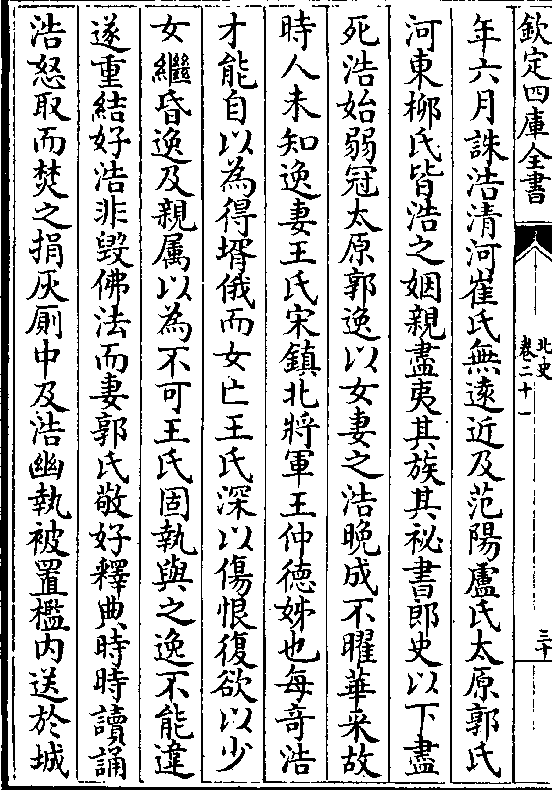 欽定四庫全書
北史
卷二十一
三十
年六月誅浩清河崔氏無遠近及范陽盧氏太原郭氏
河東柳氏皆浩之姻親盡夷其族其祕書郎史以下盡
死浩始弱冠太原郭逸以女妻之浩晚成不曜華采故
時人未知逸妻王氏宋鎮北將軍王仲德姊也每奇浩
才能自以為得壻俄而女亡王氏深以傷恨復欲以少
女繼昏逸及親属以為不可王氏固執與之逸不能違
遂重結好浩非毀佛法而妻郭氏敬好釋典時時讀誦
浩怒取而焚之捐灰厠中及浩幽執被置檻内送於城